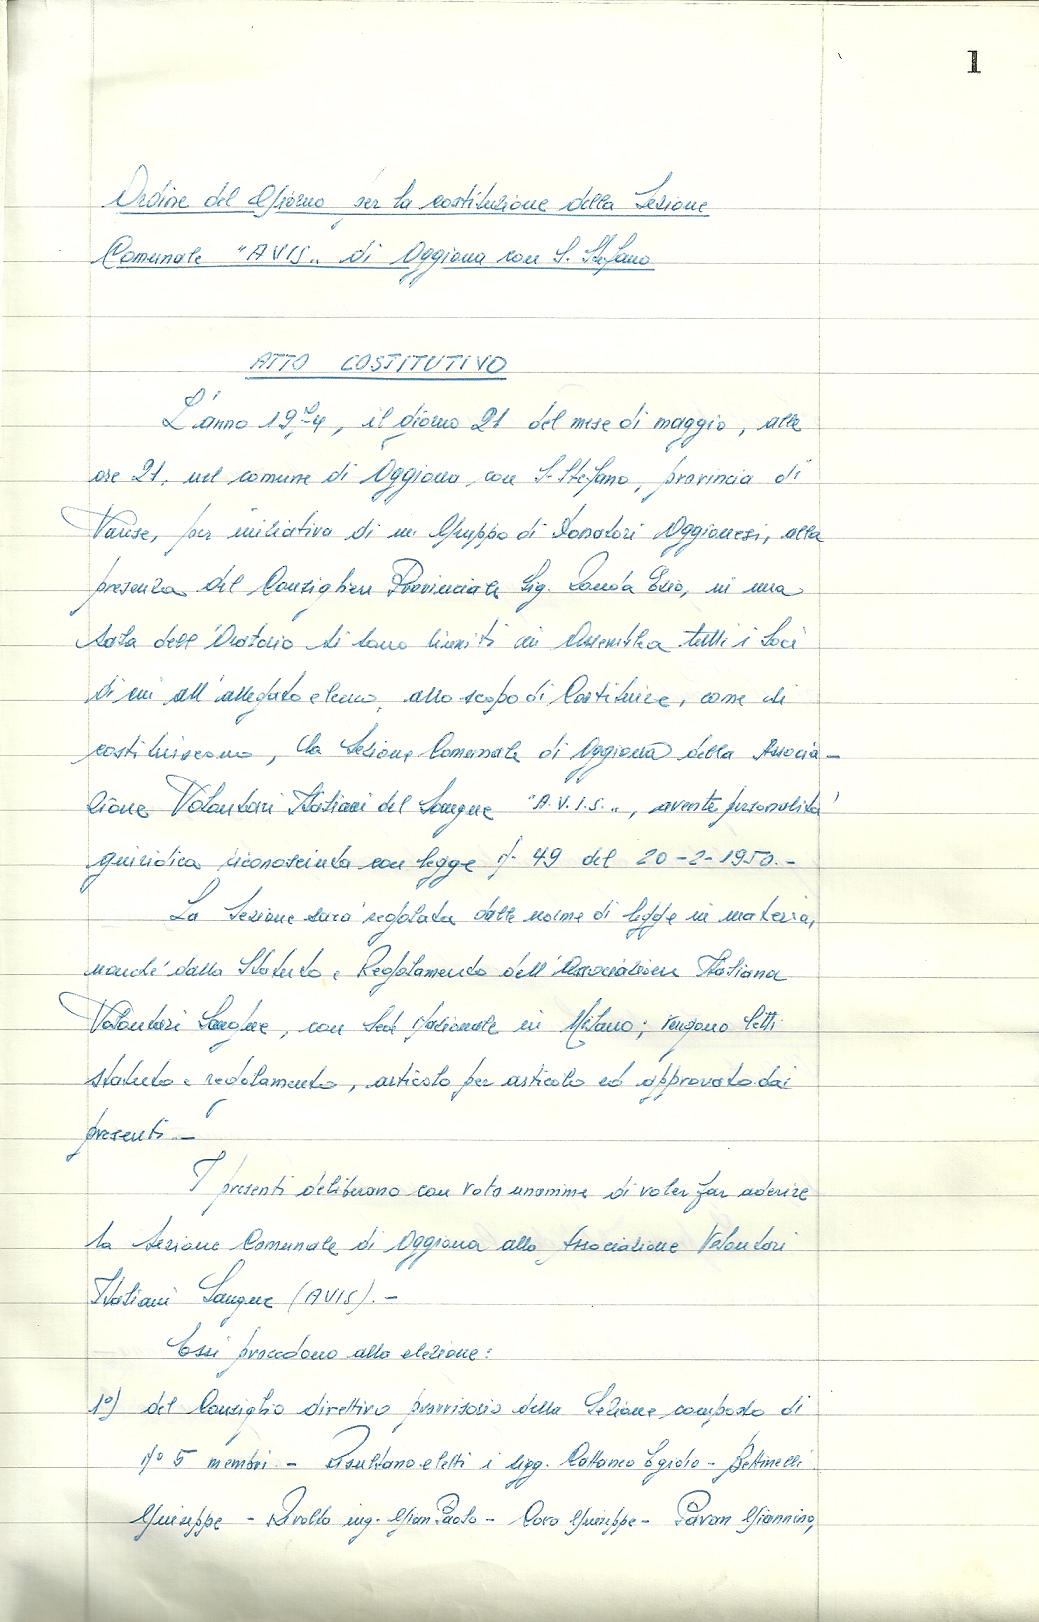 1
Ordine del Giorno per la costituzione della Sezione
Comunale "AVIS" di Oggiona con S. Stefano
ATTO COSTITUTIVO
L'anno 1974, il giorno 21 del mese di maggio, alle
ore 21, nel comune di Oggiona con S. Stefano, provincia di
Varese, per iniziativa di un Gruppo di Donatori Oggionesi, alla
presenza del Consigliere Provinciale Sig. Ezio, in una
sala dell'Oratorio si sono riuniti in Assemblea tutti i Soci
di cui all'allegato elenco, allo scopo di Costituire, come si
costituiscono, la Sezione Comunale di Oggiona della Associa-
zione Volontari Italiani del Sangue "A.V.I.S.", avente personalità
giuridica riconosciuta con legge n. 49 del 20-2-1950.-
La Sezione sarà regolata dalle norme di legge in materia,
nonché dallo Statuto e Regolamento dell'Associazione Italiana
Volontari Sangue, con Sede Nazionale in Milano; vengono letti
statuto e regolamento, articolo per articolo ed approvato dai
presenti.-
I presenti deliberano con voto unanime di voler far aderire
la Sezione Comunale di Oggiona allo Associazione Volontari
Italiani Sangue (AVIS).-
Essi procedono alla elezione:
1°) del Consiglio direttivo provvisorio della Sezione composto di
n° 5 membri - Risultano eletti i sigg. Cattaneo Egidio - Bettinelli
Giuseppe - Rivolta ing. Gian Paolo - Coro Giuseppe - Pavan Giannino,